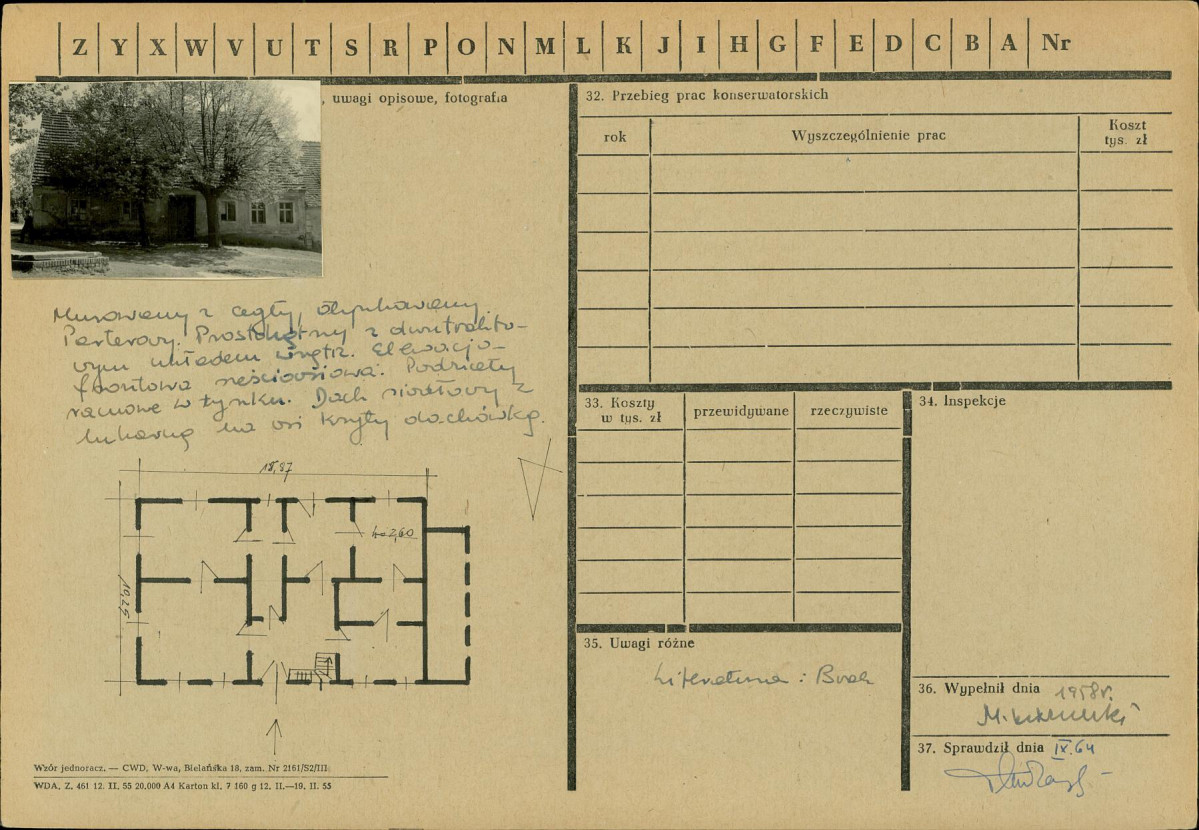 Z Y X W V U T S R P O N M L K J I H G F E D C B A Nr
, uwagi opisowe, fotografia
Murowany z cegły, otynkowany.
Parterowy. Prostokątny z dwutrakto-
wym układem wnętrz. Elewacja
frontowa sześcioosiowa. Podziały
ramowe w tynku. Dach siodłowy z
lukarną na osi kryty dachówką.
18,97
h=2,60
Wzór jednoracz. — CWD, W-wa, Bielańska 18, zam. Nr 2161/S2/III
WDA. Z. 461 12. II. 55 20.000 A4 Karton kl. 7 160 g 12. II.—19. II. 55
32. Przebieg prac konserwatorskich
rok
Wyszczególnienie prac
Koszt
tys. zł
33. Koszty
w tys. zł
przewidywane
rzeczywiste
34. Inspekcje
35. Uwagi różne
Literatura : Brak
36. Wypełnił dnia 1958r.
37. Sprawdził dnia IX.64